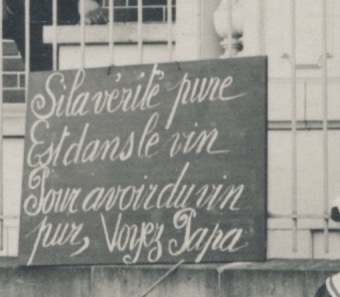 Si la vérité pure
Est dans le vin
Pour avoir du vin
pur, Voyez Papa